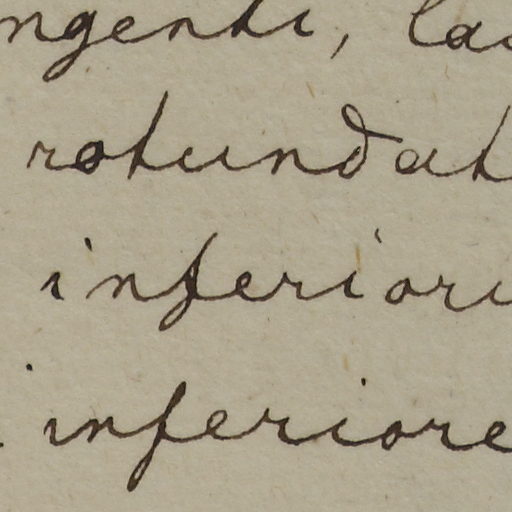 ngenti, la
rotundat
inferiori
inferiore